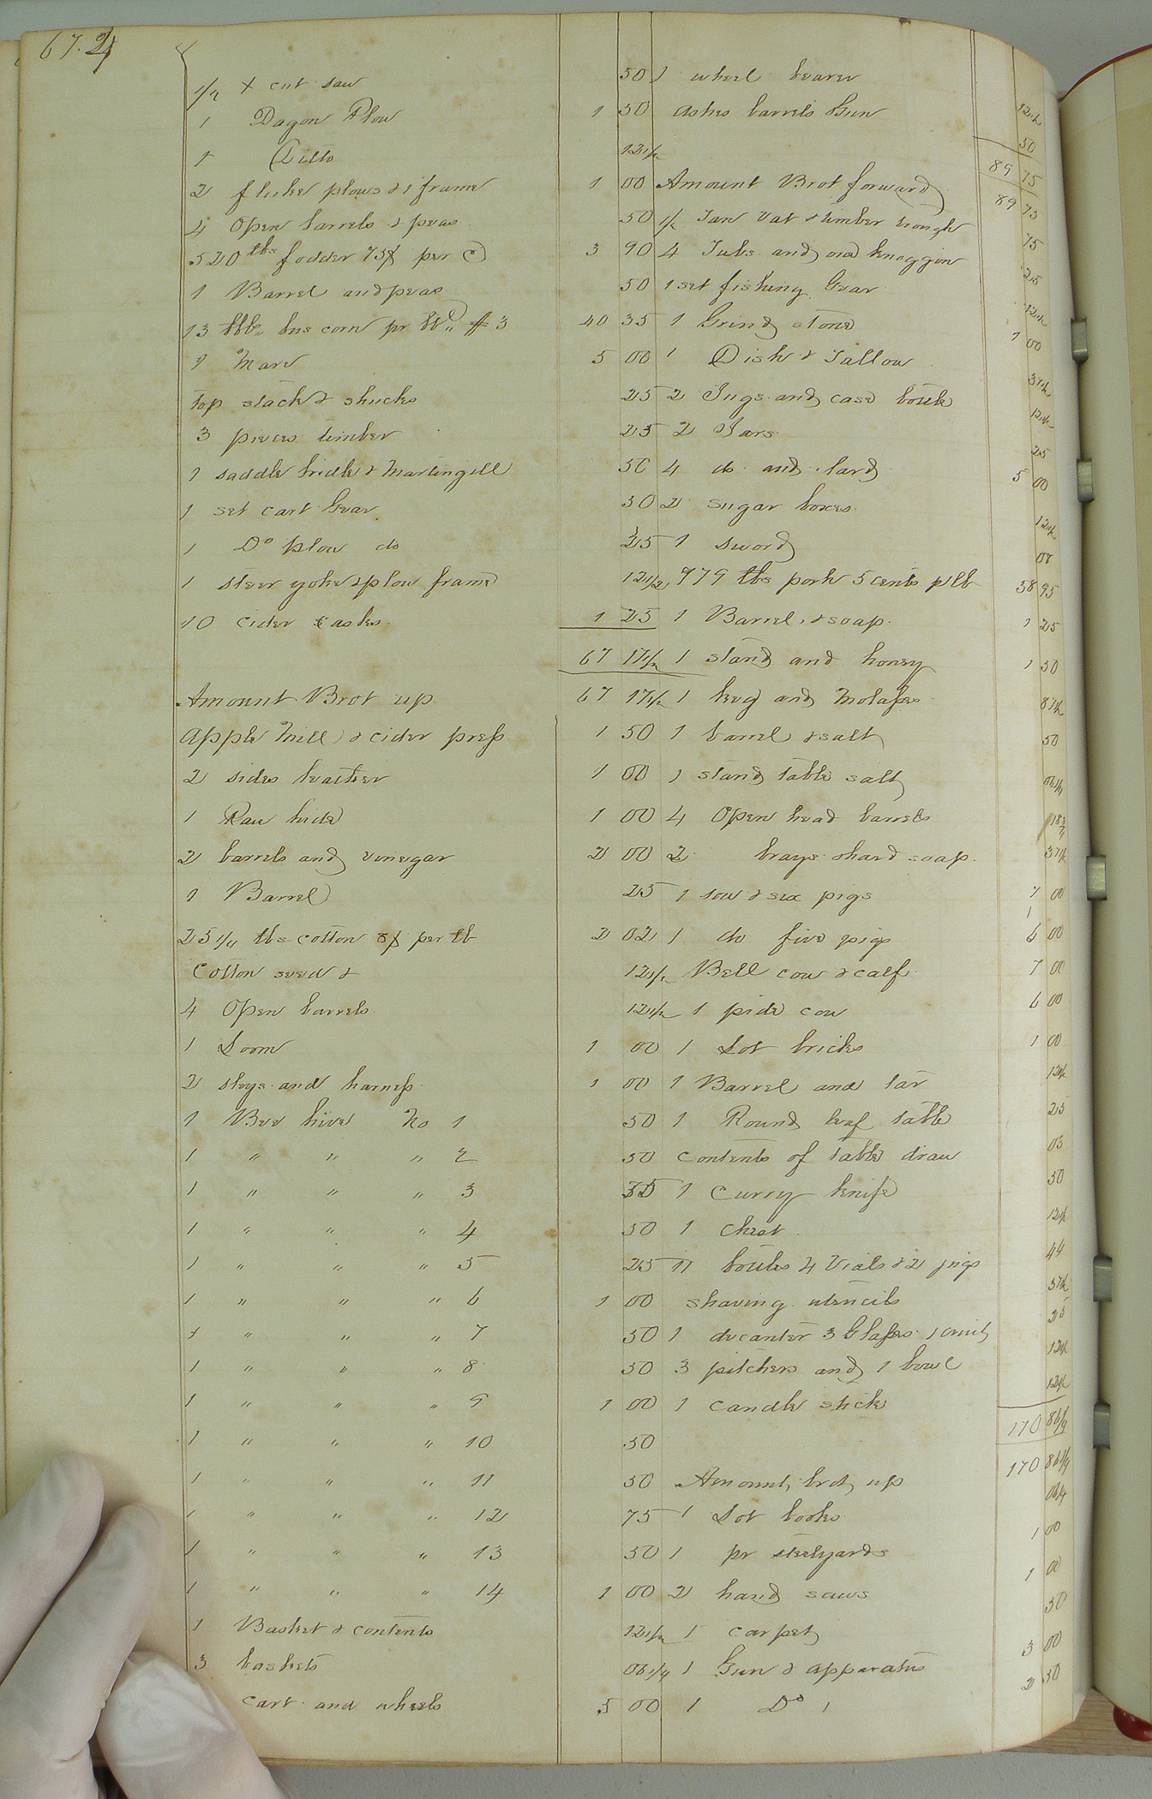 67.2
1/2 X cut saw 50
1 Dagon Plow 1 50
1 Ditto 12 1/2
2 fluke plows & 1 frame 1 00
4 Open barrels & peas 50
520 lbs fodder 75¢ per C 3 90
1 Barrel and peas 50
13 bbls bus corn pr bbl $3 40 35
1 Mare 5 00
top stack & shucks 25
3 pieces timber 25
1 saddle bridle & Martingill 50
1 set cart Gear 50
1 Do plow do 25
1 steer yoke & plow frame 12 1/2
10 cider casks 1 25
67 17 1/2
Amount Brot up 67 17 1/2
Apple Mill & cider press 1 50
2 sides leather 1 00
1 Raw hide 1 00
2 barrels and vinegar 2 00
1 Barrel 25
25 1/4 lbs cotton 8¢ per lb 2 02
Cotton seed & 12 1/2
4 Open barrels 12 1/2
1 Loom 1 00
2 slays and harness 1 00
1 Bee hive No 1 50
1 " " " 2 50
1 " " " 3
1 " " " 4 50
1 " " " 5 25
1 " " " 6 1 00
1 " " " 7 50
1 " " " 8 50
1 " " " 9 1 00
1 " " " 10 50
1 " " " 11 50
1 " " " 12 75
1 " " " 13 50
1 " " " 14 1 00
1 Basket & contents 12 1/2
3 baskets 06 1/4
cart and wheels 5 00
1 wheel bearer 12 1/2
Ashes barrels Gun 50
89 75
Amount Brot forward 89 75
1/2 Tan vat & timber trough 75
4 Tubs and one knoggin 25
1 set fishing Gear 12 1/2
1 Grind stone 1 00
1 Dish & Tallow 37 1/2
2 Jugs and case bottle 12 1/2
2 Jars 25
4 do and lard 5 00
2 sugar boxes 12 1/2
1 sword
979 lbs pork 5 cents p lb 38 95
1 Barrel & soap 1 25
1 stand and honey 1 50
1 keg and Molasses 87 1/2
1 barrel & salt 50
1 stand table salt 06 1/4
4 Open head barrels 18 3/4
2 trays & hard soap 37 1/2
1 sow & six pigs 7 00
1 do five pigs 6 00
Bell cow & calf 7 00
1 pide cow 6 00
1 Lot bricks 1 00
1 Barrel and tar 12 1/2
1 Round leaf table 25
contents of table draw 05
1 Curry knife 50
1 Chest 12 1/2
11 bottles 4 Vials & 2 jugs 44
shaving utencils 37 1/2
1 decanter 3 Glasses 1 cruit 25
3 pitchers and 1 bowl 12 1/2
1 candle stick 12 1/2
170 86 1/4
Amount brot up 170 86 1/4
1 Lot books 06 1/4
1 pr steelyards 1 00
2 hand saws 1 00
1 carpet 50
1 Gun & apparatus 3 00
1 Do 1 2 50